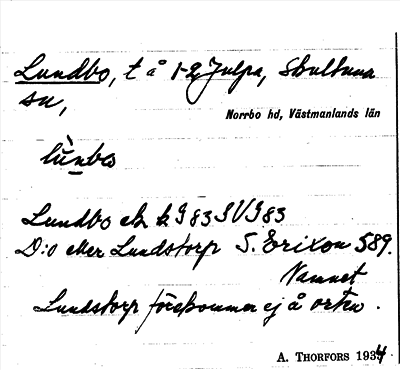 Lundbo, t å 1-2 Julpa, Skultuna
sn,
Norrbo hd, Västmanlands län
lùnbo
Lundbo ek k G 83 SVG 83
D:o eller Lundstorp S. Erixon 589.
Namnet
Lundstorp förekommer ej å orten.
A. THORFORS 1934